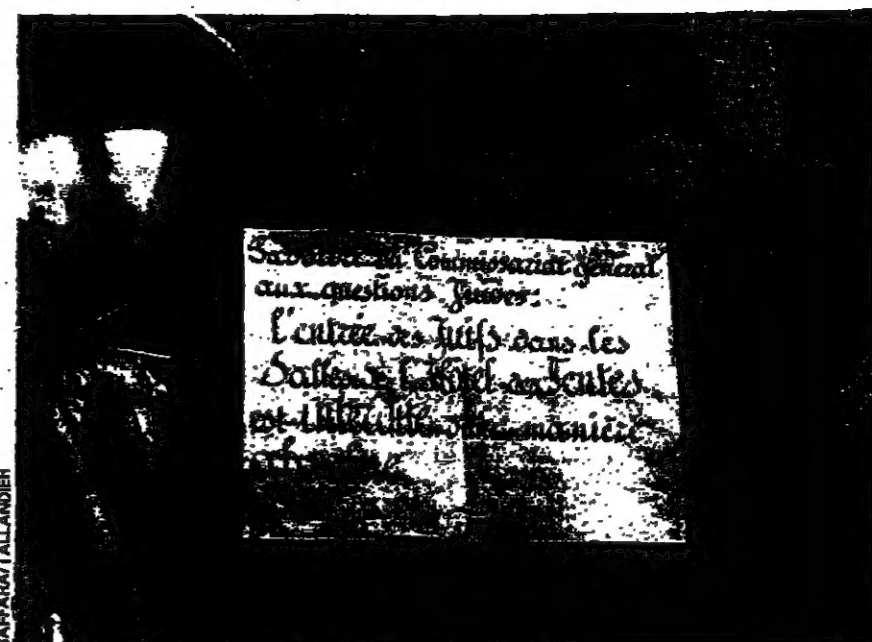 Commissariat général
aux questions Juives:
l'entrée des Juifs dans les
Salles de l'Hôtel des Ventes
est interdite manière
SAFFARA/TALLANDIER